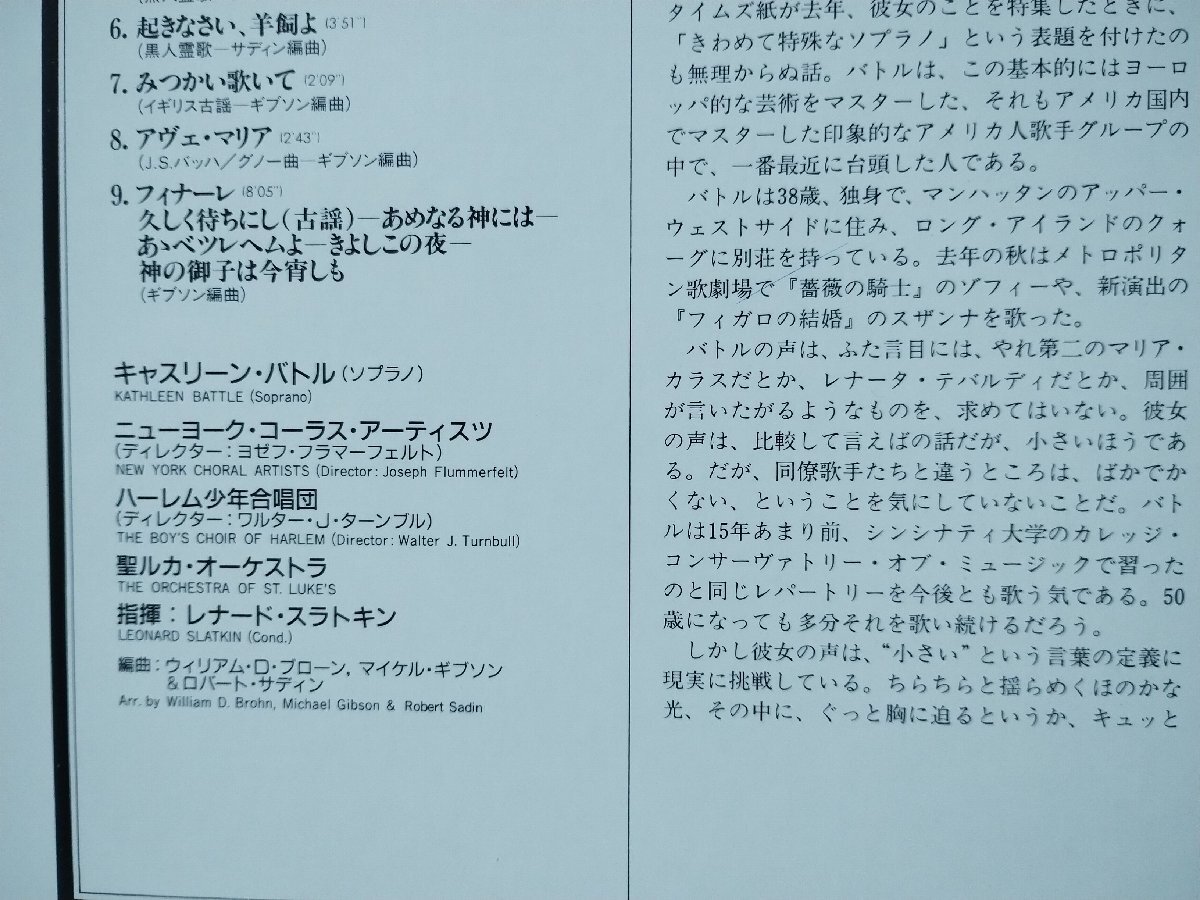 6. 起きなさい、羊飼よ (3'51")
(黒人霊歌—サディン編曲)
7. みつかい歌いて (2'09")
(イギリス古謡—ギブソン編曲)
8. アヴェ・マリア (2'43")
(J.S.バッハ/グノー曲—ギブソン編曲)
9. フィナーレ (8'05")
久しく待ちにし(古謡)—あめなる神には—
あゝベツレヘムよ—きよしこの夜—
神の御子は今宵しも
(ギブソン編曲)
キャスリーン・バトル(ソプラノ)
KATHLEEN BATTLE (Soprano)
ニューヨーク・コーラス・アーティスツ
(ディレクター:ヨゼフ・フラマーフェルト)
NEW YORK CHORAL ARTISTS (Director: Joseph Flummerfelt)
ハーレム少年合唱団
(ディレクター:ワルター・J・ターンブル)
THE BOY'S CHOIR OF HARLEM (Director: Walter J. Turnbull)
聖ルカ・オーケストラ
THE ORCHESTRA OF ST. LUKE'S
指揮:レナード・スラトキン
LEONARD SLATKIN (Cond.)
編曲:ウィリアム・D・ブローン, マイケル・ギブソン
&ロバート・サディン
Arr. by William D. Brohn, Michael Gibson & Robert Sadin
タイムズ紙が去年、彼女のことを特集したときに、
「きわめて特殊なソプラノ」という表題を付けたの
も無理からぬ話。バトルは、この基本的にはヨーロ
ッパ的な芸術をマスターした、それもアメリカ国内
でマスターした印象的なアメリカ人歌手グループの
中で、一番最近に台頭した人である。
バトルは38歳、独身で、マンハッタンのアッパー・
ウェストサイドに住み、ロング・アイランドのクォ
ーグに別荘を持っている。去年の秋はメトロポリタ
ン歌劇場で『薔薇の騎士』のゾフィーや、新演出の
『フィガロの結婚』のスザンナを歌った。
バトルの声は、ふた言目には、やれ第二のマリア・
カラスだとか、レナータ・テバルディだとか、周囲
が言いたがるようなものを、求めてはいない。彼女
の声は、比較して言えばの話だが、小さいほうであ
る。だが、同僚歌手たちと違うところは、ばかでか
くない、ということを気にしていないことだ。バト
ルは15年あまり前、シンシナティ大学のカレッジ・
コンサーヴァトリー・オブ・ミュージックで習った
のと同じレパートリーを今後とも歌う気である。50
歳になっても多分それを歌い続けるだろう。
しかし彼女の声は、“小さい”という言葉の定義に
現実に挑戦している。ちらちらと揺らめくほのかな
光、その中に、ぐっと胸に迫るというか、キュッと